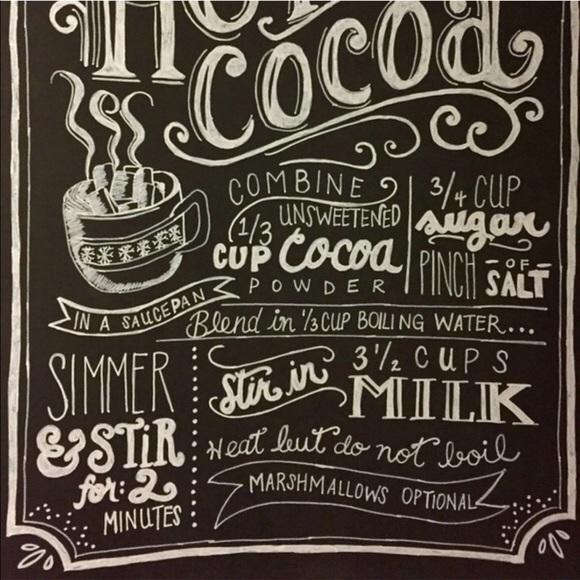 Hot
Cocoa
COMBINE
1/3 UNSWEETENED
CUP Cocoa
POWDER
3/4 CUP
sugar
PINCH OF
SALT
IN A SAUCEPAN
Blend in 1/3 CUP BOILING WATER...
SIMMER
& STiR
for: 2
MINUTES
Stir in 3 1/2 CUPS
MILK
Heat but do not boil
MARSHMALLOWS OPTIONAL